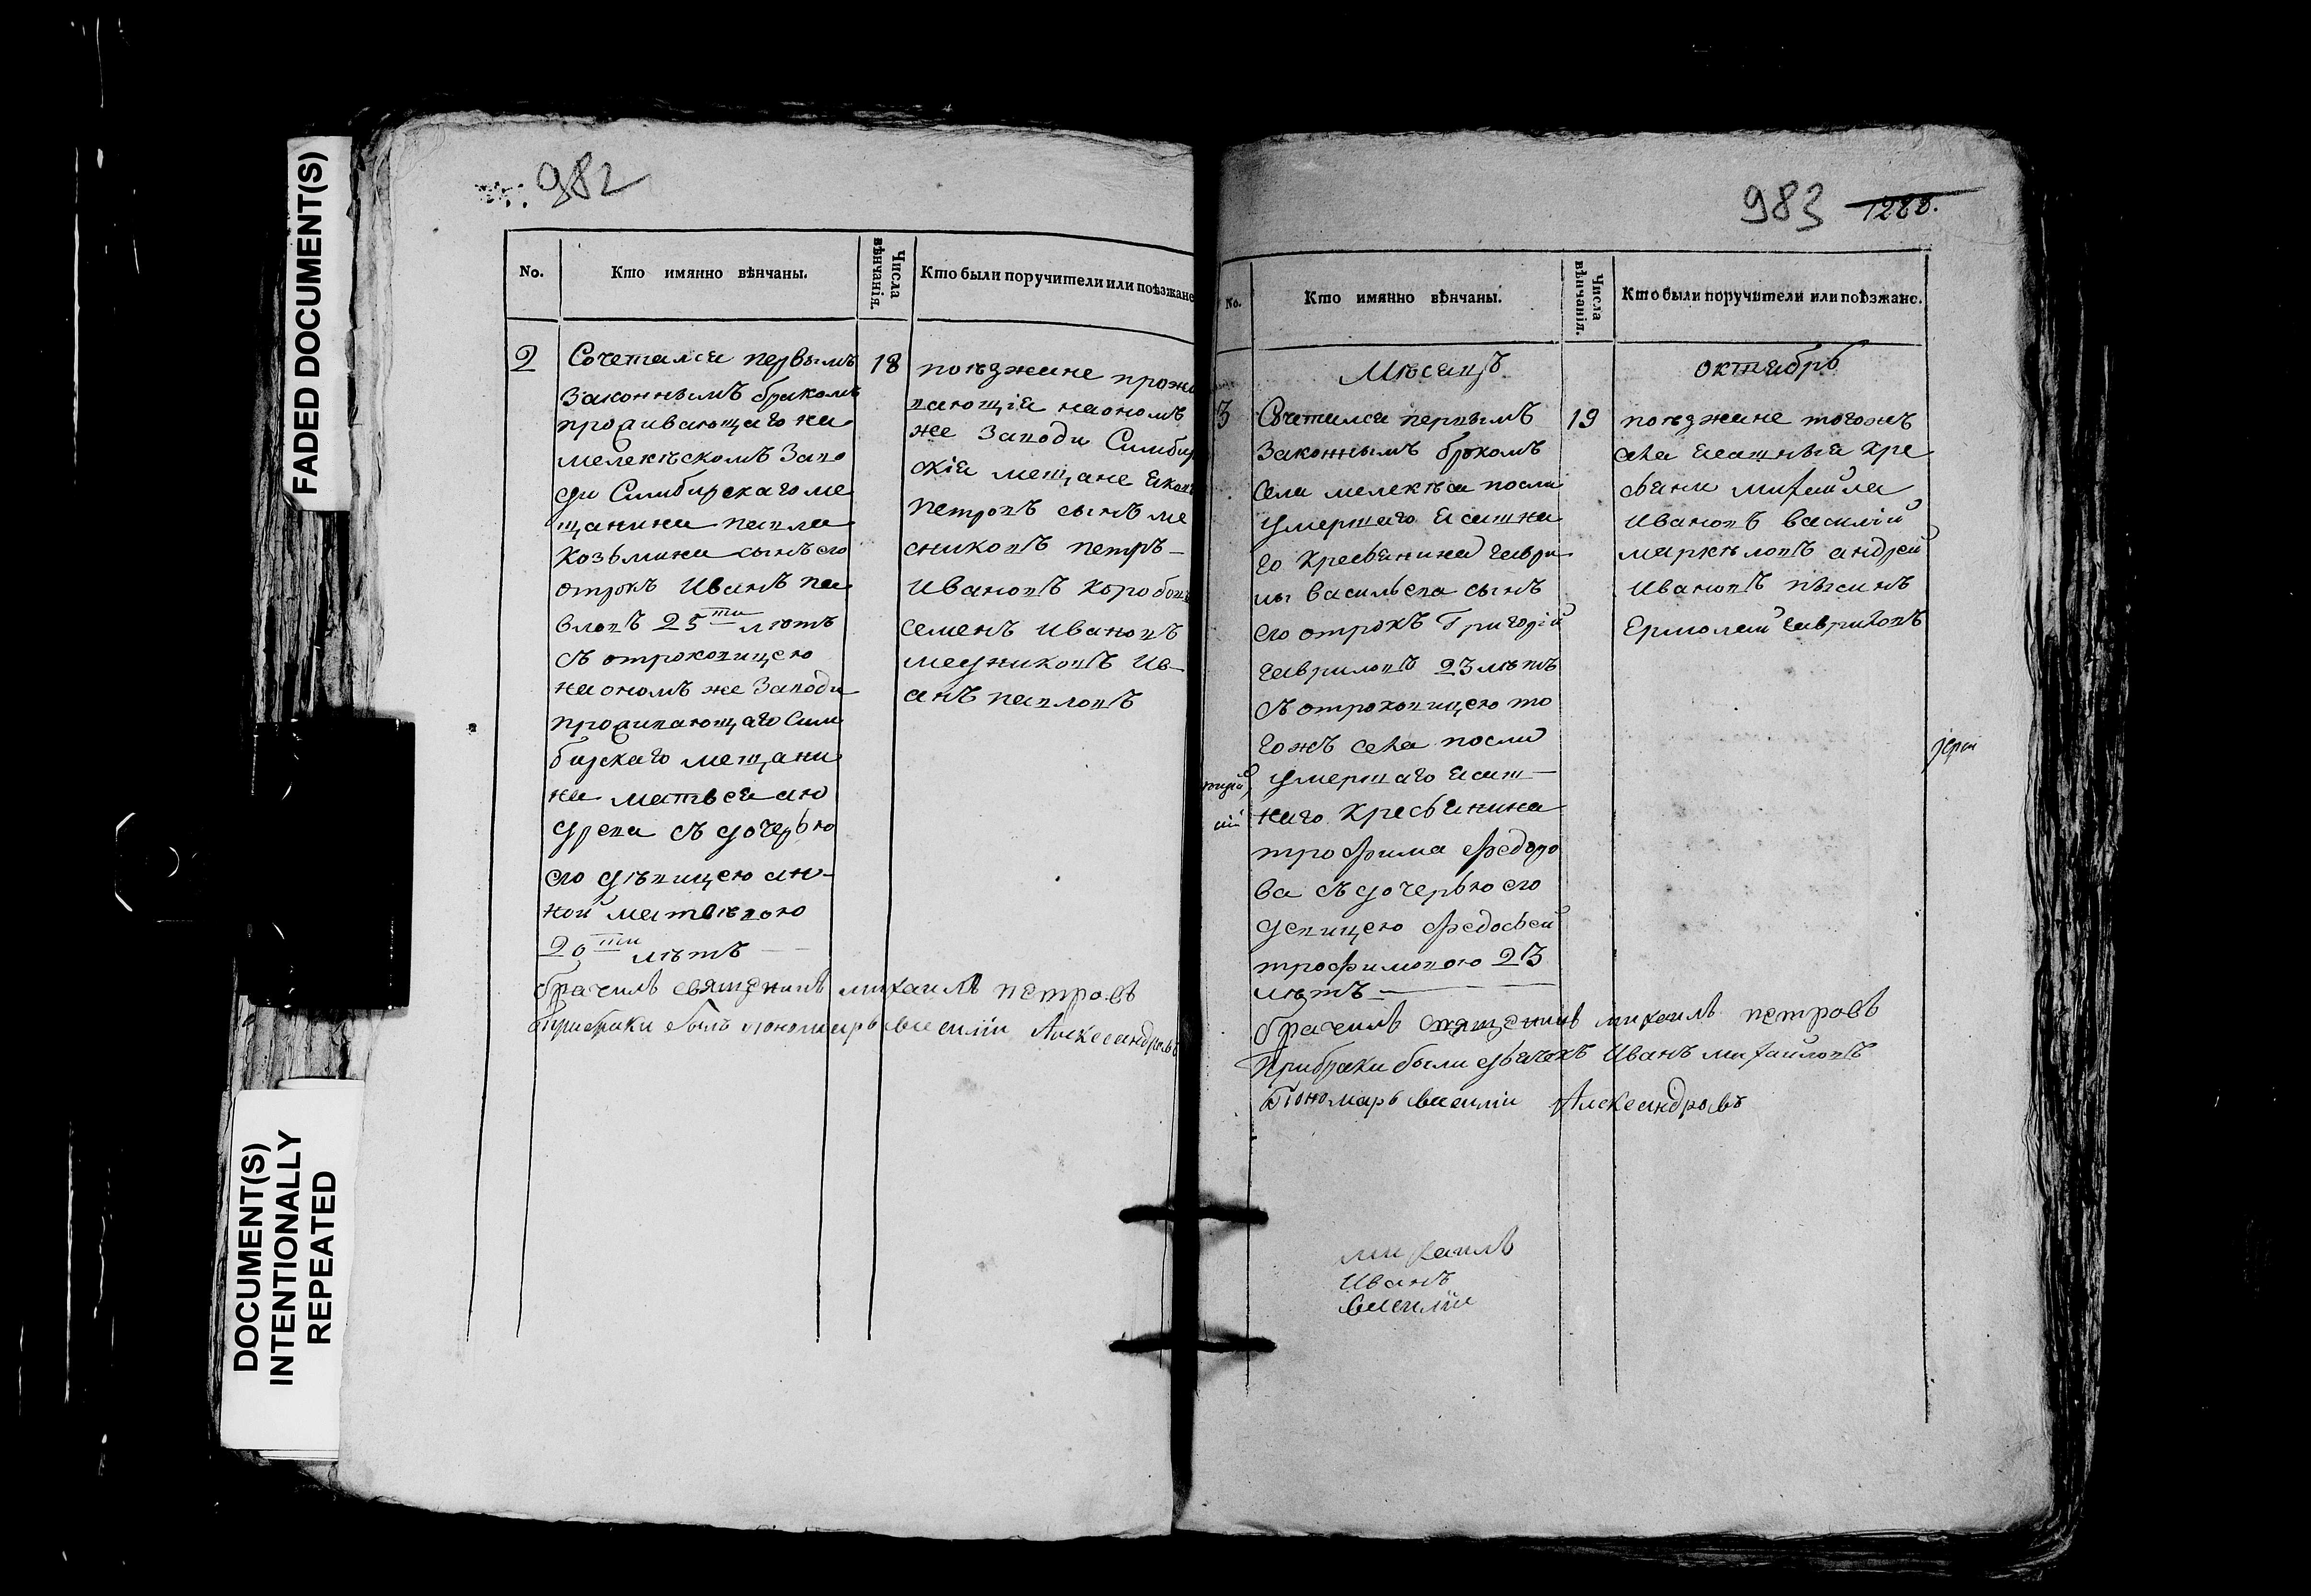 FADED DOCUMENT(S)
DOCUMENT(S)
INTENTIONALLY
REPEATED
982
No.
Кто имянно вѣнчаны.
Числа
вѣнчанія.
Кто были поручители или поѣзжане
2
Сочетался первымъ
законнымъ бракомъ
проживающаго на
мелекѣскомъ заво
ди Симбирскаго ме
щанина павла
Козьмина сынъ его
отрокъ Иванъ па
вловъ 25 ти лѣтъ
съ отроковицею
наономъ же заводи
проживающаго Сим
бирскаго мещани
на матвея
древа съ дочерью
его дѣвицею ан-
ной матвѣвою
20 ти лѣтъ
18
поѣзжане прожи
вающія наономъ
же заводи Симбир
скія мещане
петровъ сынъ ме
сниковъ петръ-
Ивановъ Коробовъ
семенъ ивановъ
медниковъ Ив-
анъ павловъ
брачилъ священникъ михаилъ петровъ
при браки былъ пономарь василіи Александровъ
983 1288.
No.
Кто имянно вѣнчаны.
Числа
вѣнчанія.
Кто были поручители или поѣзжане.
Мѣсяцъ октябрь
3
Сочетался первымъ
законнымъ бракомъ
села мелекѣса посли
умершаго ясашна
го крестьянина гаври
лы васильева сынъ
его отрокъ Григорій
гавриловъ 23 лѣтъ
съ отроковицею то
гожъ села посли
умершаго ясаш-
наго крестьянина
трофима федоро
ва съ дочерью его
девицею федосьей
трофимовою 23
лѣтъ
19
поѣзжане тогожъ
села ясашныя кре
стьяни михайла
Ивановъ василій
маркѣловъ андрей
Ивановъ пѣсинъ
Ермолай гавриловъ
брачилъ священникъ михаилъ петровъ
при браки были дьячокъ Иванъ михайловъ
Пономарь василіи Александровъ
михаилъ
Иванъ
василіи